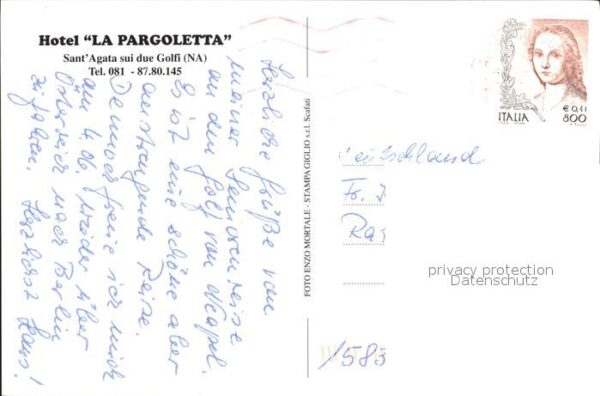 Hotel "LA PARGOLETTA"
Sant'Agata sui due Golfi (NA)
Tel. 081 - 87.80.145
Herzliche Grüße von
meiner Seniorenreise
an den Golf von Neapel.
Es ist eine schöne aber
anstrengende Reise.
Dennoch freue ich mich
am 4.06. wieder über
Österreich nach Berlin
zu fahren. Herzlichst Hans!
FOTO ENZO MORTALE - STAMPA GIGLIO s.r.l. Scafati
€ 0,41
ITALIA 800
Deutschland
Fr. I
Ra
privacy protection
Datenschutz
1583